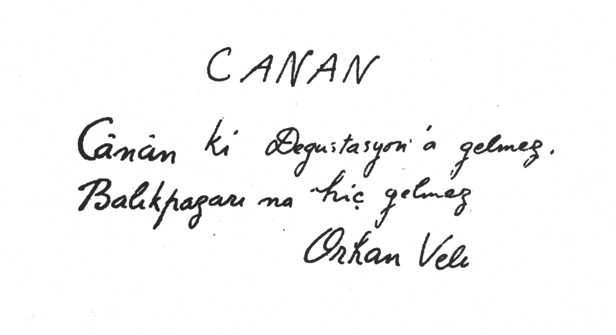 CANAN
Cânân ki Degustasyon'a gelmez.
Balıkpazarı na hiç gelmez
Orhan Veli